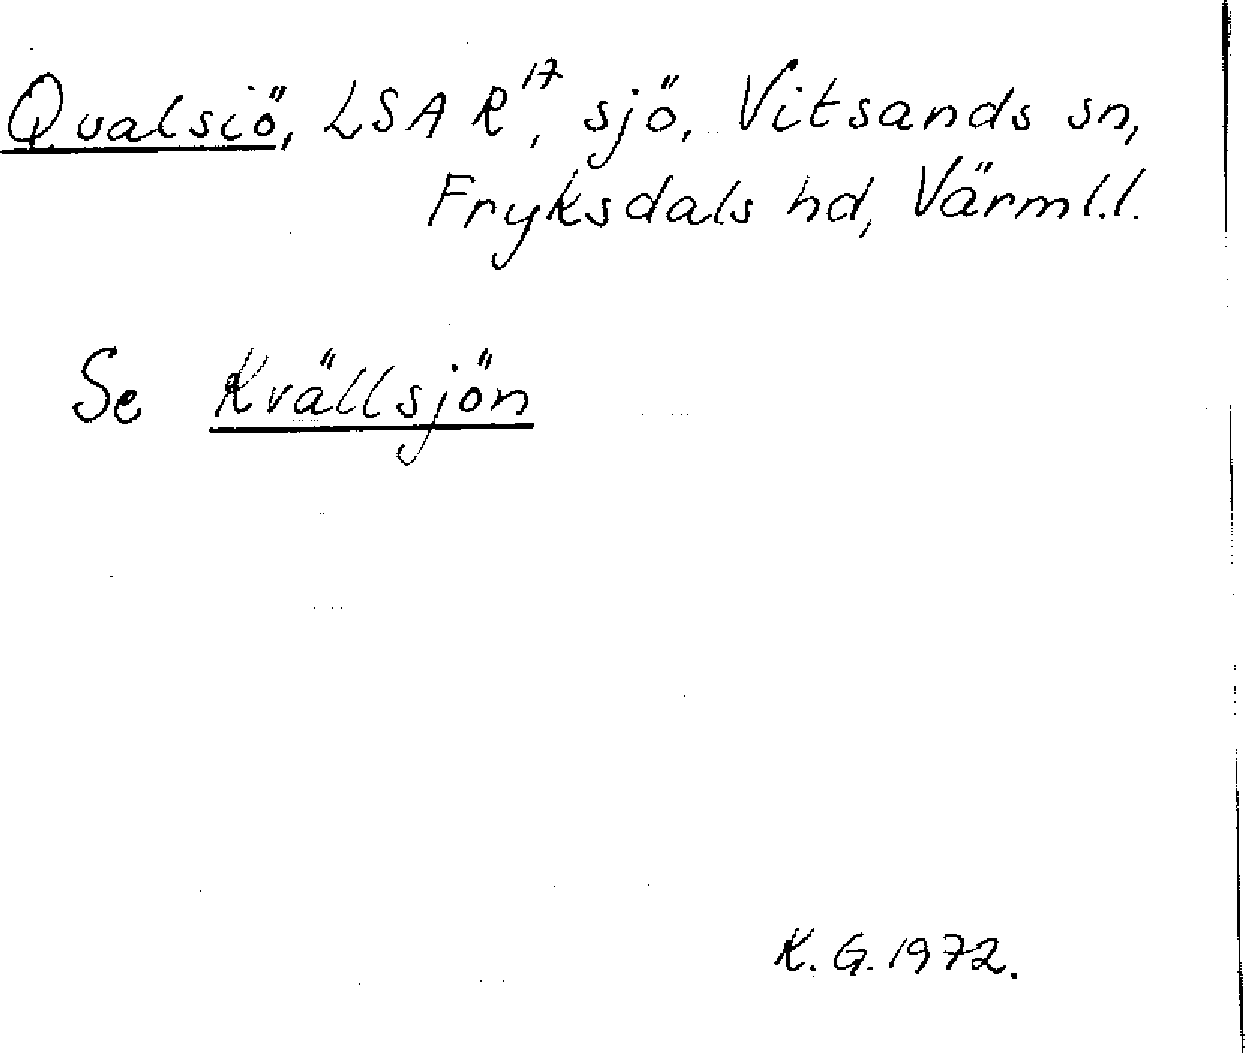 Qvalsiö, LSA R¹⁷, sjö, Vitsands sn,
Fryksdals hd, Värml.l.
Se Krällsjön
K. G. 1972.